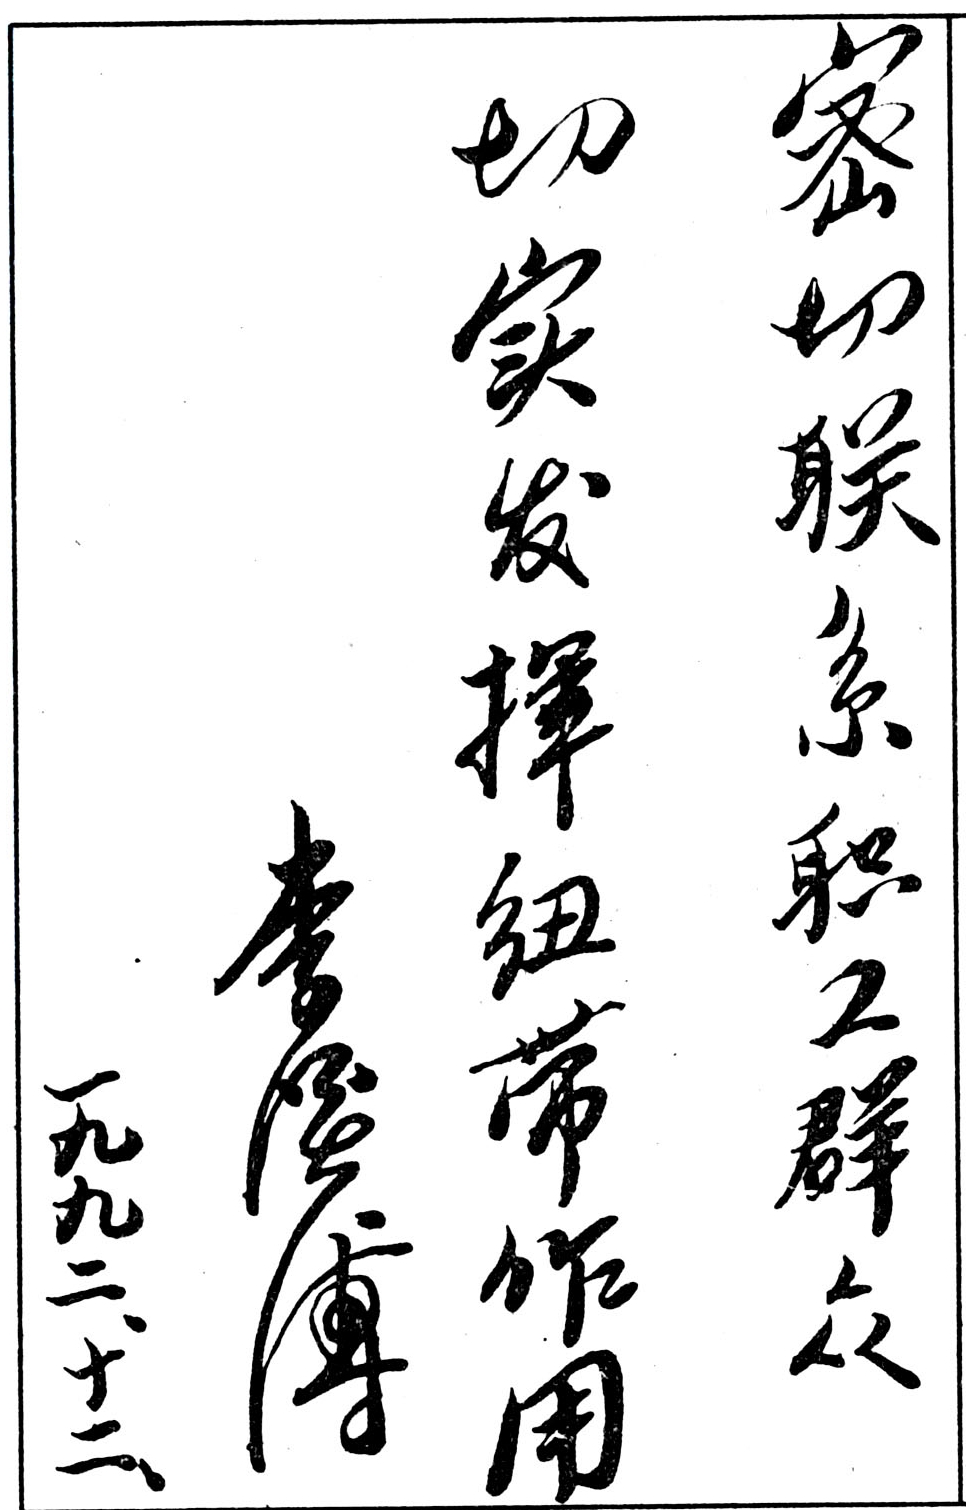 密切联系职工群众
切实发挥纽带作用
李
一九九二、十二、